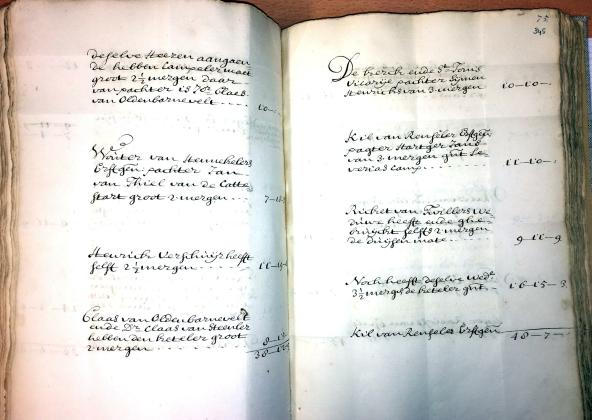 deselve Heeren aangaen
de hebben Campeler maet
groot 2½ mergen daar
van pachter is Jor Claes
van Oldenbarnevelt .... 10-
Wouter van Hennekelers
Erffgen. pachter Jan
van Thiel van de Catte
start groot 2 mergen .... 7-
Henrick Verschuijr heeft
selff 2½ mergen ......
Claas van Oldenbarnevelt
ende Dr. Claas van
hebben den keteler groot
2 mergen
75
345
De kerck ende St. Joris
vicarije pachter Sijmen
Henricks van 3 mergen 10-10-
Kil van Renseler Erffgen
pagter
van 3 mergen gnt
camp.... 11-10-
Ricket van Twillers we
duwe heeft ende
bruijckt selffs 2 mergen
de duijsen mate... 9-11-9
Noch heeft deselve wede.
3½ mergen de keteler gnt.. 16-15-3
Kil van Renseler Erffgen 48-7-